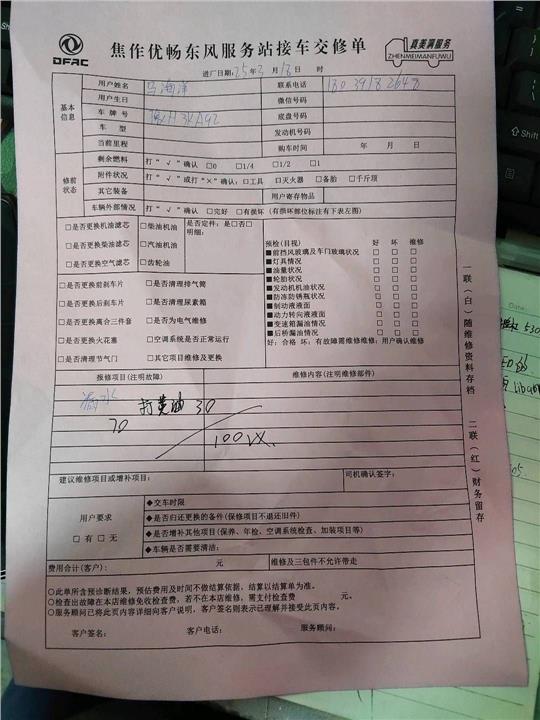 DFAC
焦作优畅东风服务站接车交修单
真美满服务
ZHENMEIMANFUWU
进厂日期:25年3月18日 时
基本信息
用户姓名 马海洋 联系电话
用户生日 微信号码
车牌号 豫H3KA92 底盘号码
车型 发动机号码
当前里程 购车时间 年 月 日
修前状态
剩余燃料 打“√”确认 □0 □1/4 □1/2 □1
附件状况 打“√”或打“×”确认:□工具 □灭火器 □备胎 □千斤顶
其它装备 用户寄存物品
车辆外部情况 打“√”确认 □完好 □有损坏(有损坏部位标注有下表左图)
□是否更换机油滤芯 □柴油机油 是否定件:是□否□
明细:
□是否更换柴油滤芯 □汽油机油
□是否更换空气滤芯 □齿轮油
□是否更换前刹车片 □是否清理排气筒
□是否更换后刹车片 □是否清理尿素箱
□是否更换离合三件套 □是否为电气维修
□是否更换火花塞 □空调系统是否正常运行
□是否清理节气门 □其它项目维修及更换
预检(目视) 好 坏 维修
■前挡风玻璃及车门玻璃状况 □ □ □
■灯具情况 □ □ □
■油量状况 □ □ □
■轮胎状况 □ □ □
■发动机机油状况 □ □ □
■防冻防锈瓶状况 □ □ □
■制动液液面 □ □ □
■动力转向液液面 □ □ □
■变速箱漏油情况 □ □ □
■后桥漏油情况 □ □ □
好:合格 坏:有故障需维修维修:用户确认维修
报修项目(注明故障) 维修内容(注明维修部件)
打黄油 30
70
100
建议维修项目或增补项目: 司机确认签字:
用户要求
□有 □无
◆交车时限
◆是否归还更换的备件(保修项目不退还旧件)
◆是否增补其他项目(保养、年检、空调系统检查、加装项目等)
◆车辆是否需要清洁:
费用合计(客户): 元 维修及三包件不允许带走
○此单所含预诊断结果,预估费用及时间不做结算依据,结算以结算单为准。
○检查出故障在本店维修免收检查费,若不在本店维修,需支付检查费 元。
○服务顾问已将此页内容详细向客户说明,客户签名则表示已理解并接受此页内容。
客户签名: 客户电话: 服务顾问:
一联(白)随维修资料存档
二联(红)财务留存
Shift
Date: